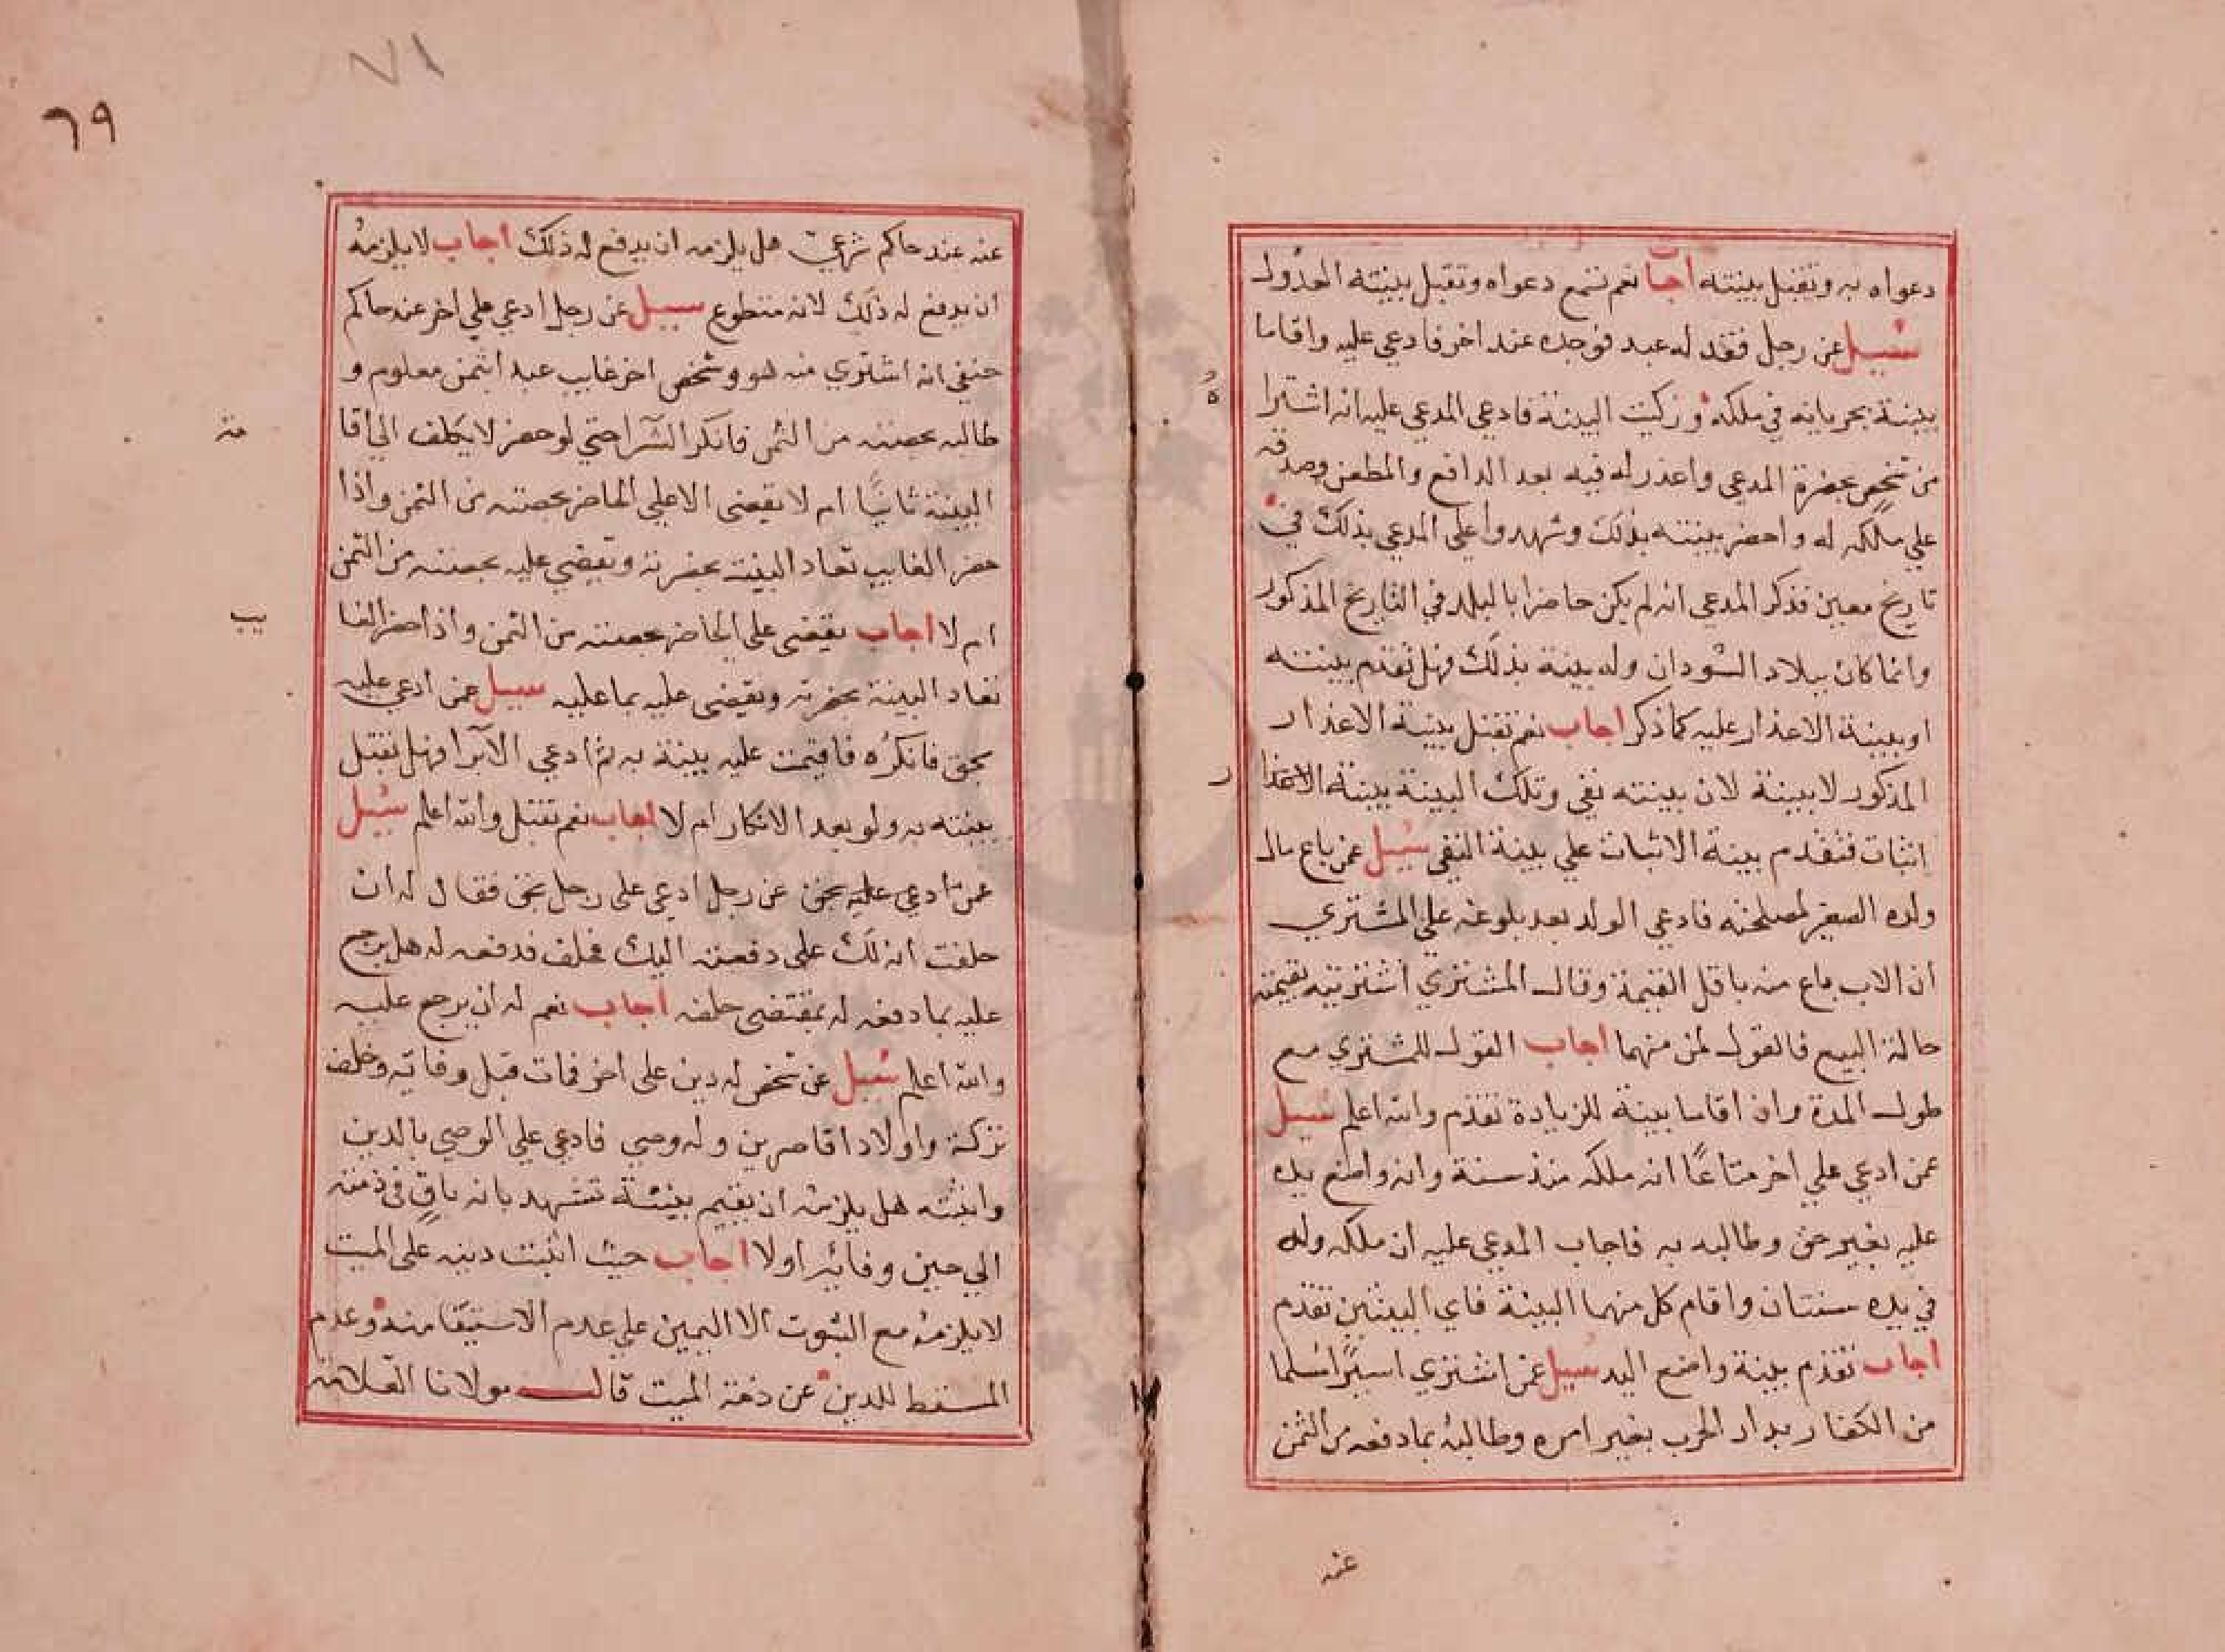 دعواه به وتقبل بينته اجاب نعم تسمع دعواه وتقبل بينته العدول
سيل عن رجل فقد له عبد فوجده عند اخر فادعي عليه واقاما
بينة بجريانه في ملكه وزكيت البينة فادعي المدعي عليه انه اشترا ه
من شخص بحضرة المدعي واعذر له فيه بعد الدافع والمطعن وصدقه
علي ملكه له واحضر بينته بذلك وشهدوا علي المدعي بذلك في
تاريخ معين فذكر المدعي انه لم يكن حاضرا بالبلد في التاريخ المذكور
وانما كان ببلاد السودان وله بينة بذلك فهل تقدم بينته
او بينة الاعذار عليه كما ذكر اجاب نعم تقبل بينة الاعذار
المذكور لا بينة لان بينته نفي وتلك البينة بينة الاعذا ر
اثبات فتقدم بينة الاثبات علي بينة النفي سيل عمن باع مال
ولده الصغير لمصلحته فادعي الولد بعد بلوغه علي المشتري
ان الاب باع منه باقل القيمة وقال المشتري اشتريته بقيمته
حالة البيع فالقول لمن منهما اجاب القول للمشتري مع
طول المدة وان اقاما بينة للزيادة تقدم والله اعلم سيل
عمن ادعي علي اخر متاعًا انه ملكه منذ سنة وانه واضع يده
عليه بغير حق وطالبه به فاجاب المدعي عليه ان ملكه وله
في يده سنتان واقام كل منهما البينة فاي البينتين تقدم
اجاب تقدم بينة واضع اليد سيل عمن اشتري اسيرًا مسلما
من الكفار بدار الحرب بغير امره وطالبه بما دفعه من الثمن
عنه
٧١
٦٩
عنه عند حاكم شرعي هل يلزمه ان يدفع له ذلك اجاب لا يلزمه
ان يدفع له ذلك لانه متطوع سيل عن رجل ادعي علي اخر عند حاكم
حنفي انه اشتري منه هو وشخص اخر غايب عبدا بثمن معلوم و
طالبه بحصته من الثمن فانكر الشرا حتي لو حضر لا يكلف الي اقا مة
البينة ثانيًا ام لا يقضي الا علي الحاضر بحصته من الثمن واذا
حضر الغايب تعاد البينة بحضرته ويقضي عليه بحصته من الثمن
ام لا اجاب يقضي علي الحاضر بحصته من الثمن واذا حضر الغا يب
تعاد البينة بحضرته ويقضي عليه بما عليه سيل عمن ادعي عليه
بحق فانكره فاقيمت عليه بينة به ثم ادعي الابرا فهل تقبل
بينته به ولو بعد الانكار ام لا اجاب نعم تقبل والله اعلم سيل
عمن ادعي عليه بحق عن رجل ادعي علي رجل بحق فقال له ان
حلفت انه لك علي دفعته اليك فحلف فدفعه له هل يرجع
عليه بما دفعه له بمقتضي حلفه اجاب نعم له ان يرجع عليه
والله اعلم سيل عن شخص له دين علي اخر فمات قبل وفائه وخلف
تركة واولادا قاصرين وله وصي فادعي علي الوصي بالدين
واثبته هل يلزمه ان يقيم بينة تشهد بانه باق في ذمته
الي حين وفاته او لا اجاب حيث اثبت دينه علي الميت
لا يلزمه مع الثبوت الا اليمين علي عدم الاستيفا منه وعدم
المسقط للدين عن ذمة الميت قال مولانا العلامة